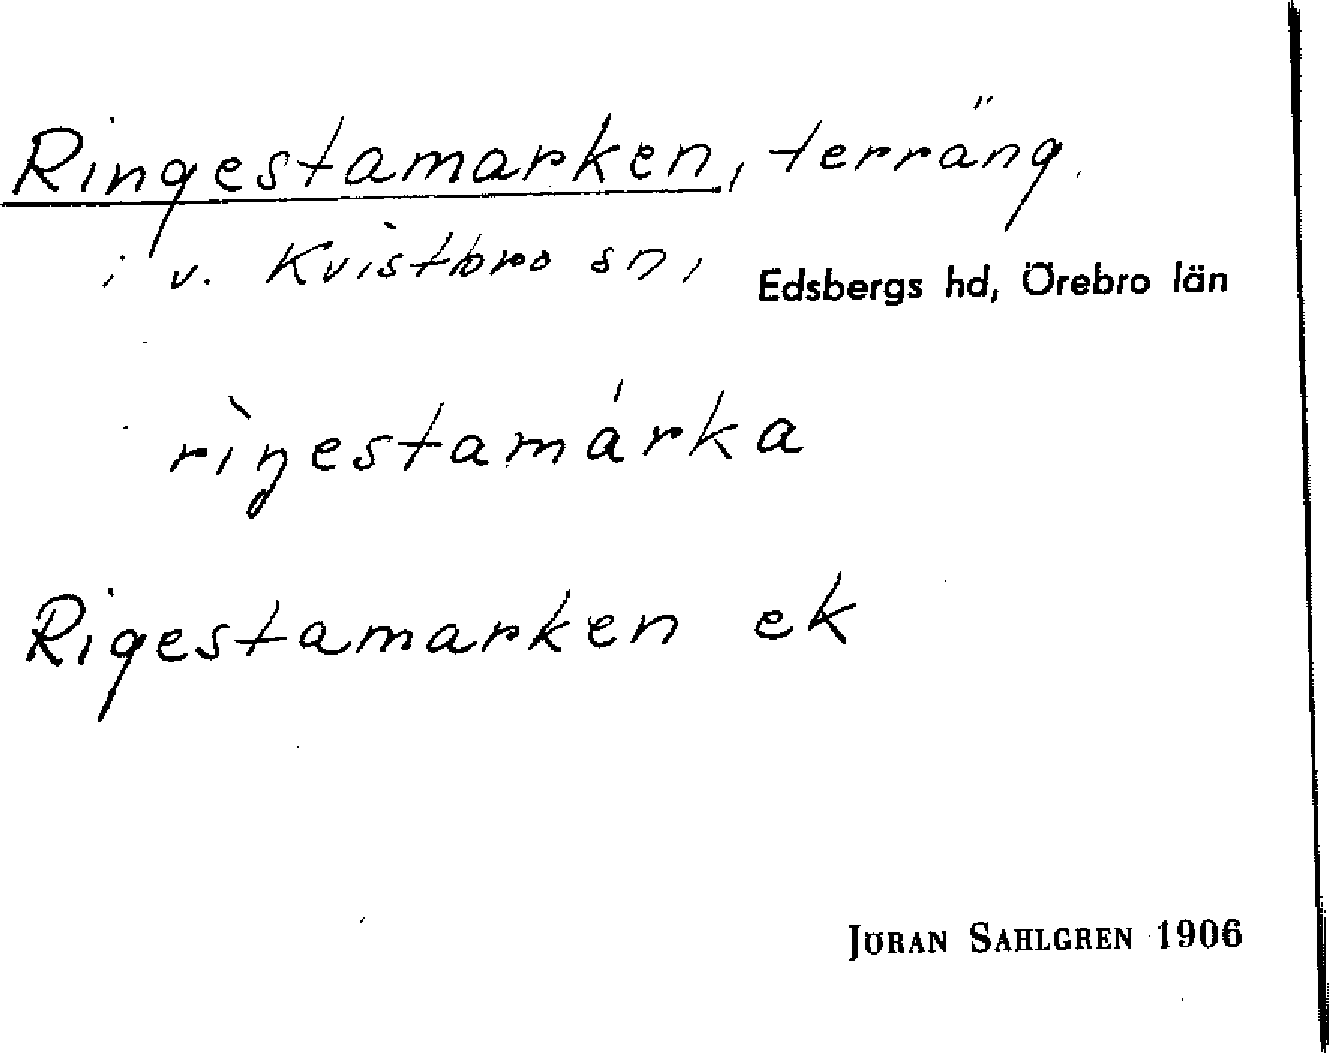 Ringestamarken, terräng.
i v. Kvistbro sn, Edsbergs hd, Örebro län
rìŋestamárka
Rigestamarken ek
JÖRAN SAHLGREN 1906